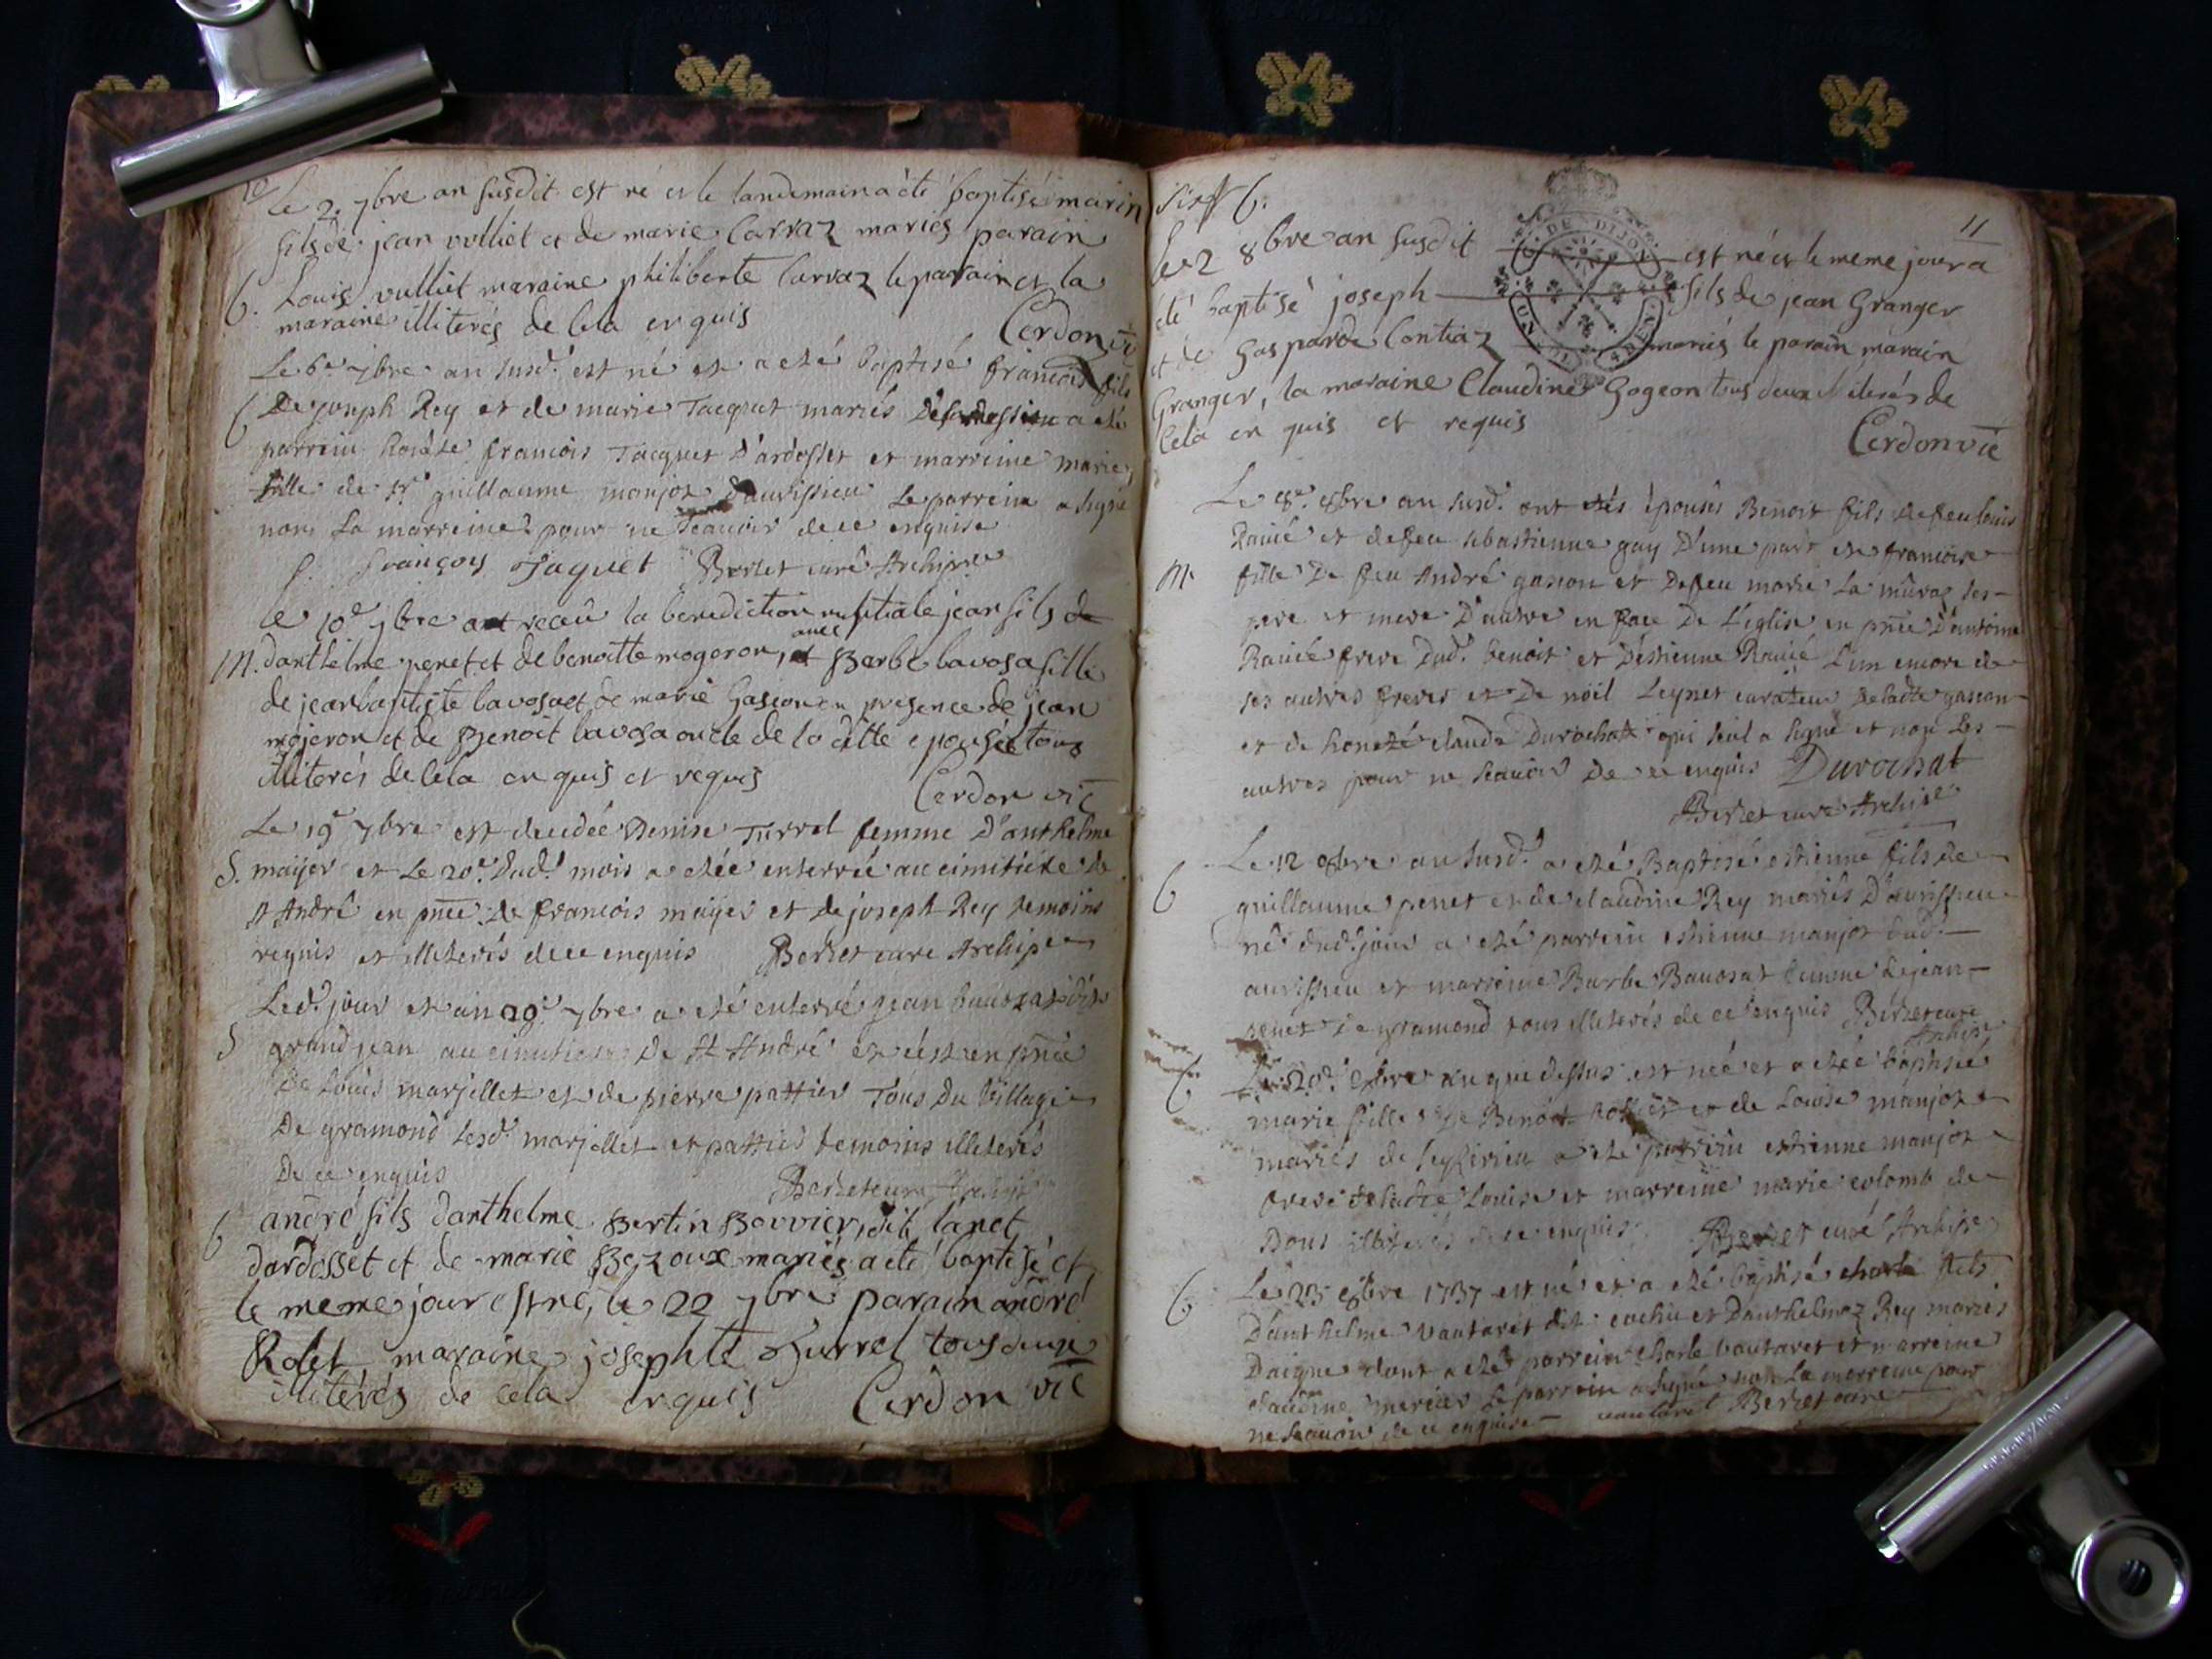 10
Le 2. 7bre an susdit est né et le landemain a été baptisé marin
fils de jean vulliet et de marie Carraz mariés parain
b. Louis vulliet maraine philiberte Carraz le parain et la
maraine illiterés de cela enquis Cerdon vic
Le 6e 7bre an susd. est né et a eté baptisé francois fils
b De joseph Rey et de marie Jacquet mariés a eté
parrein honete francois Jacquet D'ardosset et marreine marie
fille de sr guillaume monjoz D'aurissieu Le parrein a signé
non La marreine pour ne scauoir de ce enquise
f. françoy Jaquet Berzet curé Archipre
le 10e 7bre ont receu la benediction nuptiale jean fils de
M. danthelme penet et de benoitte mogeron, avec Barbe bavosa fille
de jean baptiste bavosa et de marie Gascon en presence de jean
mojeron et de Benoit bavosa oncle de la ditte epousée tous
illiterés de cela enquis et requis Cerdon vic
Le 19e 7bre est decedée Denise Turrel femme D'anthelme
S. maijer et Le 20e. Dud. mois a etée enterrée au cimitiere de
st André en pnce. de francois maijer et de joseph Rey temoins
requis et illiterés de ce enquis Berzet curé Archip
Led. jour et an 7bre a eté enterré jean bauozat dit
S grand jean au cimitiere De St André et c'est en pnce
de Louis marjollet et de pierre pattier Tous Du Village
De gramond Lesd. marjollet et pattier temoins illiterés
De ce enquis Berzet curé Archip
b andré fils danthelme Bertin Bovvier, dit lanet
dardosset et de marie Bezoux mariés a eté baptisé et
le meme jour est né, le 22 7bre parain andré
Rolet maraine josephte Turrel tous deux
illiterés de cela enquis Cerdon vic
six b.
11
DE DIJON
Le 2 8bre an susdit est né et le meme jour a
été baptisé joseph fils de jean Granger
et de Gasparde Contiaz mariés le parain marain
Granger, la maraine Claudine Gogeon tous deux illiterés de
cela en quis et requis Cerdon vic
Le 8e. 8bre an susd. ont étés épousés Benoit fils de feu louis
Raucé et de feu sebastienne guy D'une part et francoise
M. fille De feu André gascon et De feu marie La muraz ses
pere et mere D'autre en face De L'eglise en pnce D'antoine
Raucé frere Dud. benoit et D'estienne Raucé L'un encore de
ses autres freres et De noël Leynet curateur De ladte gascon
et de honeté claude Durochat qui seul a signé et non Les
autres pour ne scauoir De ce enquis Durochat
Berzet curé Archipe
Le 12 8bre an susd. a eté Baptisé estienne fils de
b guillaume penet et de claudine Rey mariés D'aurissieu
né dud. jour a eté parrein estienne monjoz dud.
aurissieu et marreine Barbe Bauosat femme de jean
penet De gramond tous illiterés de ce enquis Berzet curé
Archipe
b Le 20e. 8bre an que dessus est née et a etée baptisée
marie fille De Benoit et de Louise monjoz
mariés de a eté parrein estienne monjoz
frere de ladte Louise et marreine marie colomb de
Dous illiterés de ce enquis Berzet curé Archipe
b Le 23 8bre 1737 est né et a eté baptisé charle fils
D'anthelme vautaret dit cochu et D'anthelmaz Rey mariés
Daigne dont a eté parrein charle vautaret et marreine
claudine mercier Le parrein a signé non La marreine pour
ne scauoir de ce enquise vautaret Berzet curé